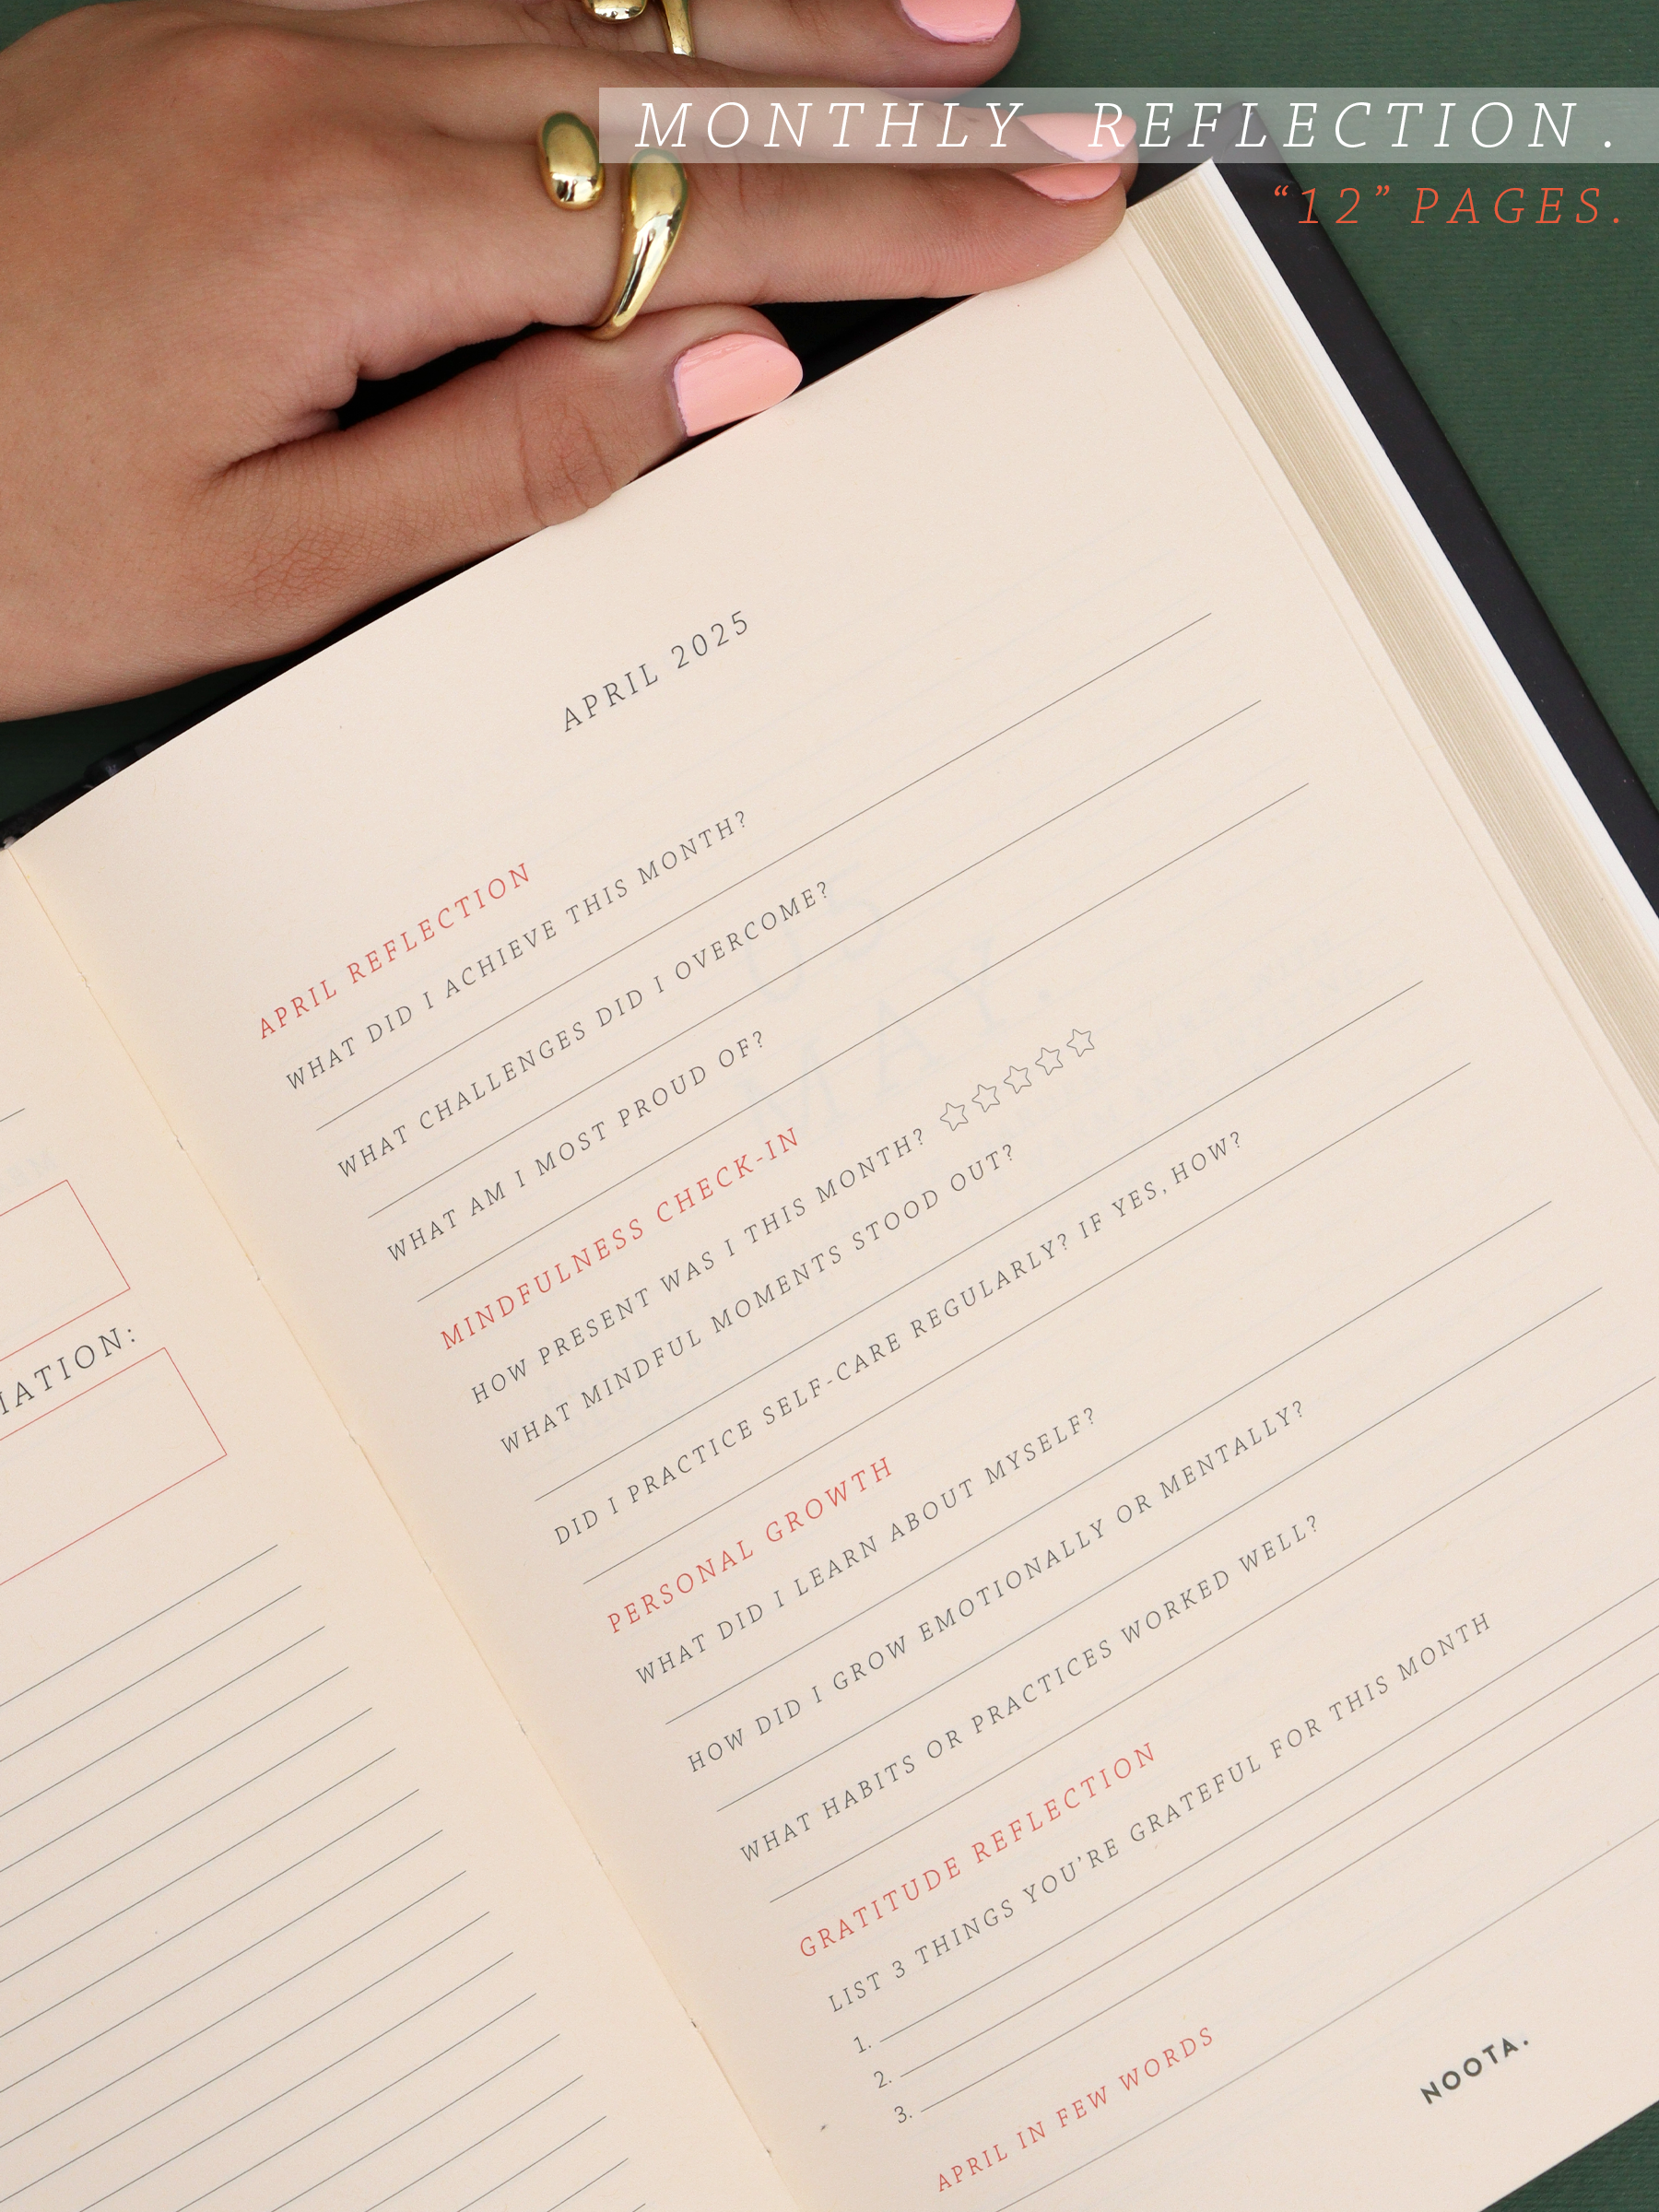 MONTHLY REFLECTION.
“12” PAGES.
APRIL 2025
APRIL REFLECTION
WHAT DID I ACHIEVE THIS MONTH?
WHAT CHALLENGES DID I OVERCOME?
WHAT AM I MOST PROUD OF?
MINDFULNESS CHECK-IN
HOW PRESENT WAS I THIS MONTH?
WHAT MINDFUL MOMENTS STOOD OUT?
DID I PRACTICE SELF-CARE REGULARLY? IF YES, HOW?
PERSONAL GROWTH
WHAT DID I LEARN ABOUT MYSELF?
HOW DID I GROW EMOTIONALLY OR MENTALLY?
WHAT HABITS OR PRACTICES WORKED WELL?
GRATITUDE REFLECTION
LIST 3 THINGS YOU’RE GRATEFUL FOR THIS MONTH
1.
2.
3.
APRIL IN FEW WORDS
NOOTA.